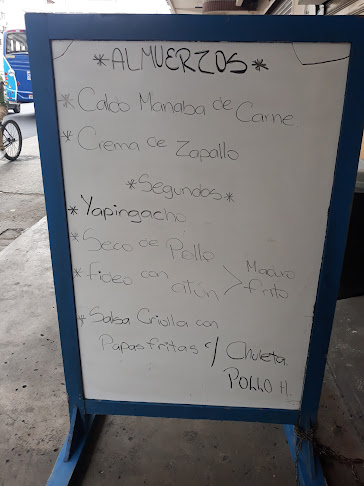 *ALMUERZOS*
* Caldo Manaba de Carne
* Crema de Zapallo
*Segundos*
* Yapingacho
* Seco de Pollo
* fideo con atún > Maduro frito
* Salsa Criolla con
Papas fritas c/ Chuleta.
POLLO H.